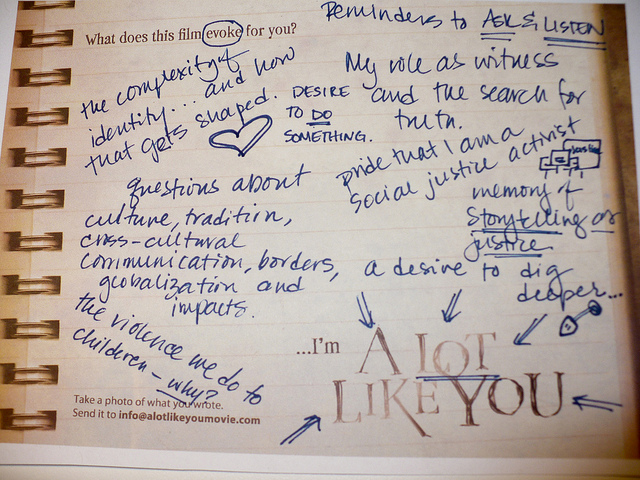 Reminders to ASK & LISTEN
What does this film evoke for you?
the complexity of
identity... and how
that gets shaped.
DESIRE
TO DO
SOMETHING.
My role as witness
and the search for
truth.
pride that I am a
social justice activist
questions about
culture, tradition,
cross-cultural
communication, borders,
globalization and
impacts.
memory of
storytelling as
justice
a desire to dig
deeper...
the violence we do to
children - why?
...I'm A LOT
LIKE YOU
Take a photo of what you wrote.
Send it to info@alotlikeyoumovie.com